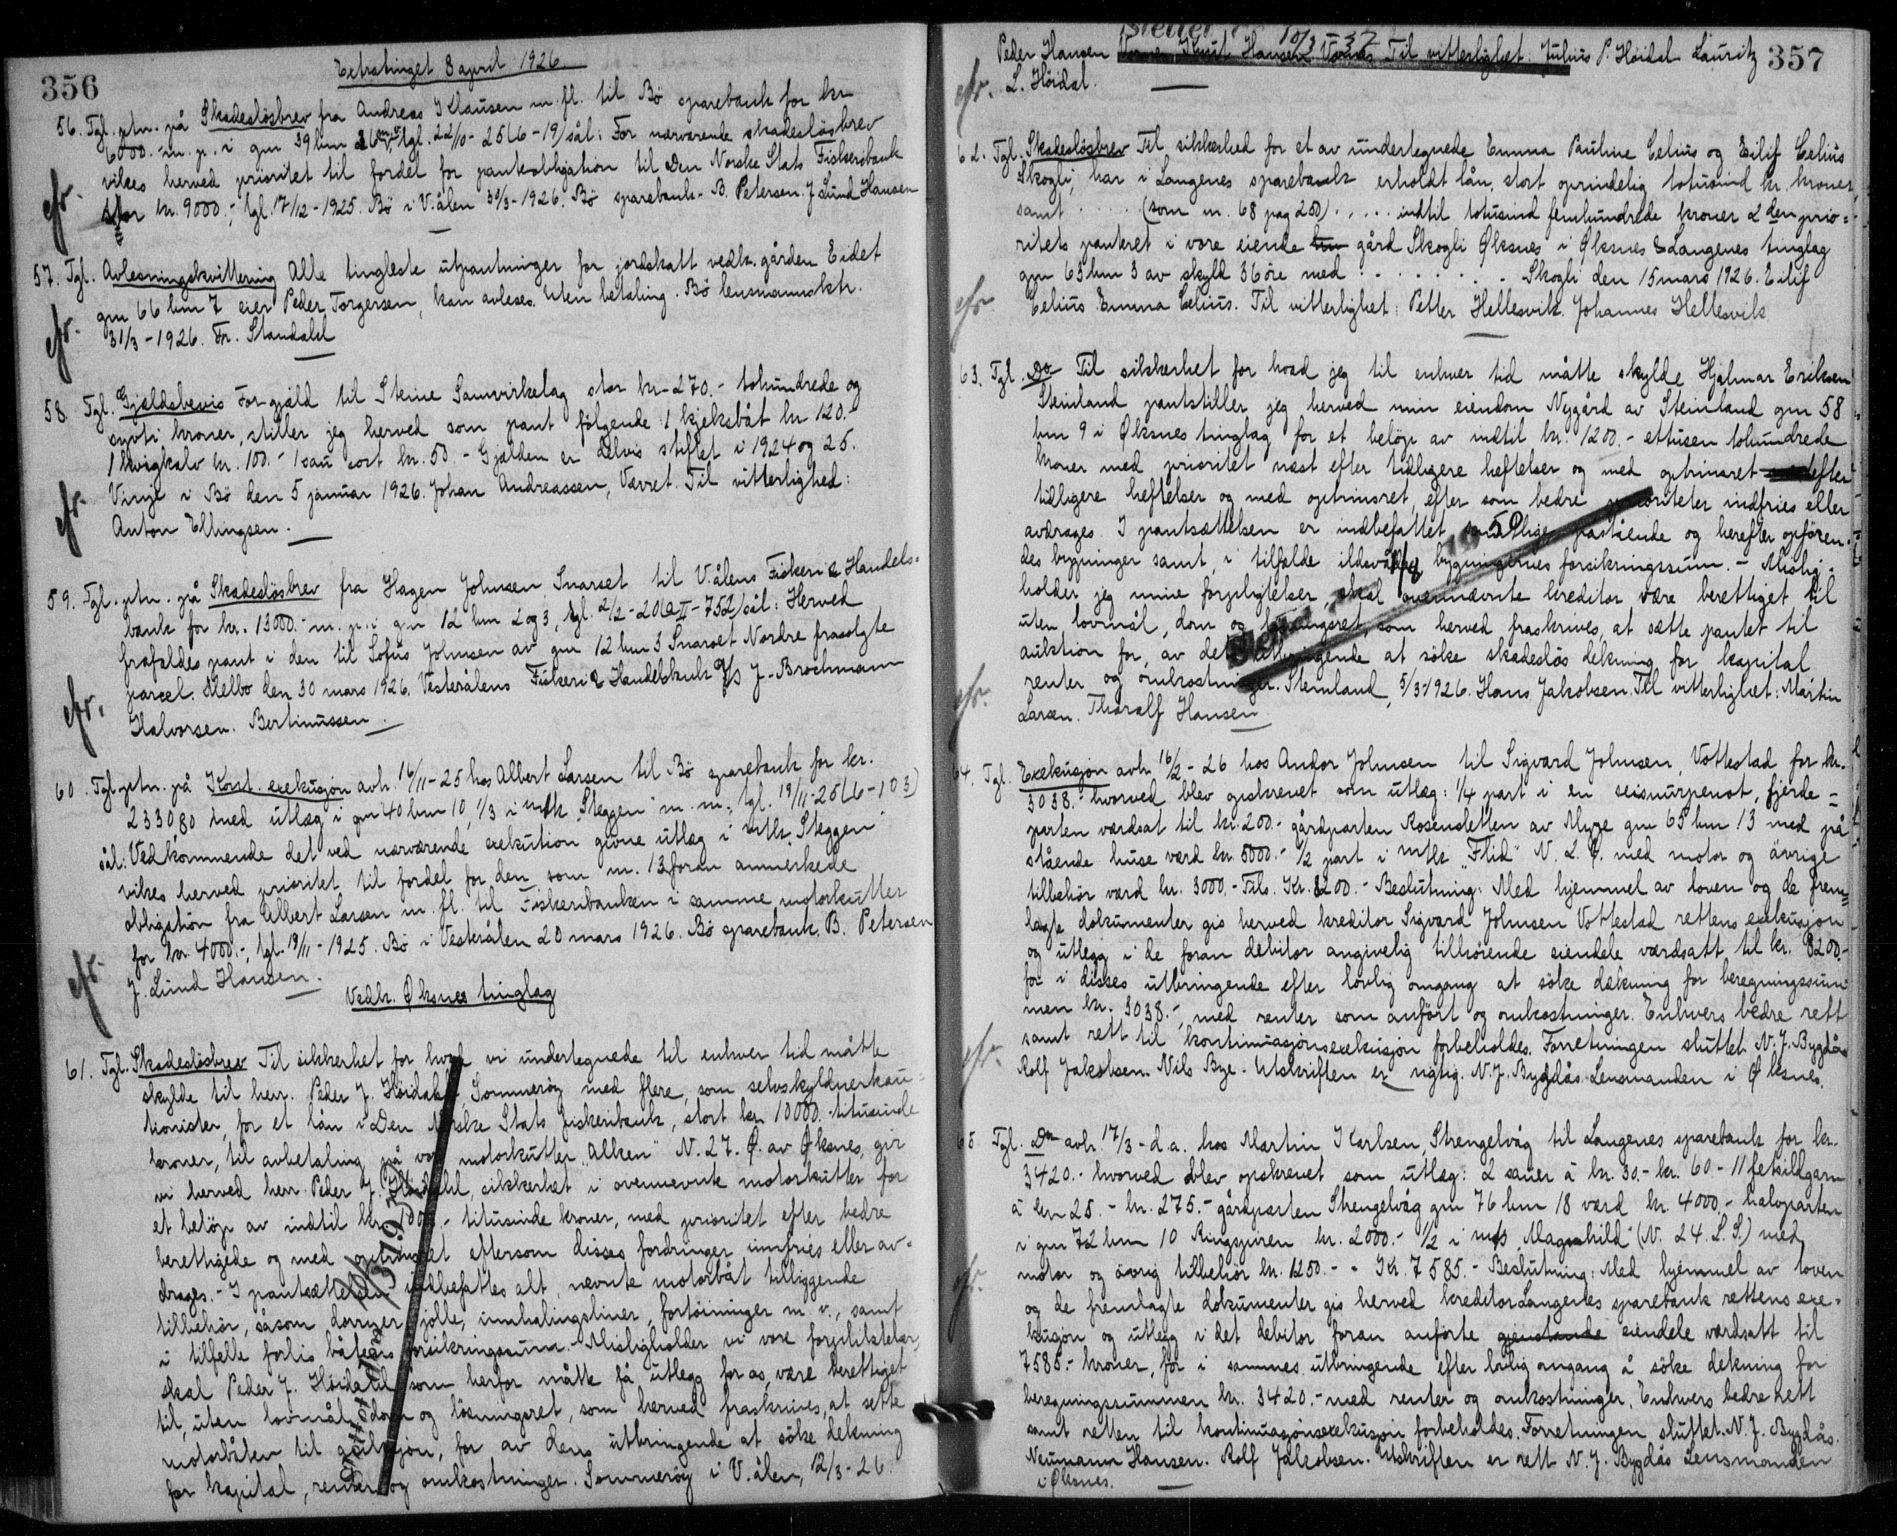 356
Extratinget 8 april 1926.
56. Tgl. ptn. på Skadesløsbrev fra Andreas J Klausen m. fl. til Bø sparebank for kr
6000.- m. p. i gnr 39 bnr 26 tgl. 22/10-25 (6-19) sål: For nærværende skadesløsbrev
vikes herved prioritet til fordel for pantobligation til Den Norske Stats Fiskeribank
stor kr. 9000.-, tgl. 17/12-1925. Bø i V.ålen 30/3-1926. Bø sparebank. B. Petersen. J Lund Hansen
57. Tgl. Avlesningskvittering Alle tingleste utpantninger for jordskatt vedk. gården Eidet
gnr 66 bnr 7 eier Peder Torgersen, kan avleses. Uten betaling. Bø lensmannsktr.
31/3-1926. Fr. Standahl
58 Tgl. Gjældsbevis For gjæld til Steine Samvirkelag stor kr-270.- tohundrede og
sytti kroner, stiller jeg herved som pant følgende: 1 kjeksbåt kr 120.-
1 kvigkalv kr. 100.- 1 sau sort kr. 50 - Gjælden er delvis stiftet i 1924 og 25.
Vinje i Bø den 5 januar 1926. Johan Andreassen, Været. Til vitterlighed:
Anton Ellingsen.
59. Tgl. ptn. på Skadesløsbrev fra Hagen Johnsen Snarset til V.ålens Fiskeri & Handels-
bank for kr. 13000.- m. p. i gnr 12 bnr 2 og 3, tgl. 2/2-20 (a II-752) sål: Herved
frafaldes pant i den til Sofus Johnsen av gnr 12 bnr 3 Snarset Nordre frasolgte
parcel. Melbo den 30 mars 1926. Vesterålens Fiskeri & Handelsbank A/S J. Brochmann
Halvorsen. Bertinussen.
60. Tgl. ptn. på Konst. exekusjon avh. 16/11-25 hos Albert Larsen til Bø sparebank for kr.
2330,80 med utlæg i gnr 40 bnr 10, 1/3 i m/k "Skeggen" m. m., tgl. 19/11-25 (6-103)
sål: Vedkommende det ved nærværende exekution givne utlæg i m/k. Skeggen
vikes herved prioritet til fordel for den som nr. 13 foran anmerkede
obligation fra Albert Larsen m. fl. til Fiskeribanken i samme motorkutter
for kr. 4000.-, tgl. 19/11-1925. Bø i Vesterålen 20 mars 1926. Bø sparebank. B. Petersen
J. Lund Hansen.
Vedk. Øksnes tinglag
61. Tgl. Skadesløsbrev Til sikkerhet for hvad vi undertegnede til enhver tid måtte
skylde til herr. Peder J. Høidahl, Sommerøy med flere, som selvskyldnerkau-
tionister, for et lån i Den Norske Stats fiskeribank, stort kr 10000.- titusinde
kroner, til avbetaling på vor motorkutter "Alken" N. 27. Ø. av Øksnes, gir
vi herved herr Peder J. Høidahl, sikkerhet i ovennevnte motorkutter for
et beløp av indtil kr. 10000.- titusinde kroner, med prioritet efter bedre
berettigede og med optrinsret eftersom disses fordringer innfries eller av-
drages. - I pantsættelsen indbefattes alt, nævnte motorbåt tilliggende
tilbehør, såsom dorryer, jolle, innhalingsliner, fortøininger m. v., samt
i tilfelle forlis båtens forsikringssum. Misligholder vi vore forpliktelser,
skal Peder J. Høidahl som herfor måtte få utlegg for os, være berettiget
til, uten lovmål, dom og løsningsret, som herved fraskrives, at sette
motorbåten til auksjon, for av dens utbringende at søke dekning
for kapital, renter og omkostninger. Sommerøy i V.ålen, 12/3-26.
357
Peder Hansen Knut Hansen Til vitterlighet: Julius P. Høidal Lauritz
L. Høidal.
62. Tgl. Skadesløsbrev Til sikkerhed for et av undertegnede Emma Pauline Celius og Eilif Celius
Skogli, har i Langenes sparebank erholdt lån, stort oprindelig totusind kr. kroner,
samt ..... (som nr. 68 pag 250) ..... indtil totusind femhundrede kroner 2 den prio-
ritets panteret i vore eiende gård Skogli Øksnes i Øksnes & Langenes tinglag
gnr 65 bnr 3 av skyld 36 øre med ........ Skogli den 15 mars 1926. Eilif
Celius Emma Celius. Til vitterlighet: Petter Hellesvik. Johannes Hellesvik
63. Tgl. Do Til sikkerhet for hvad jeg til enhver tid måtte skylde Hjalmar Eriksen
Steinland pantstiller jeg herved min eiendom Nygård av Steinland gnr 58
bnr 9 i Øksnes tinglag for et beløp av indtil kr. 1200.- ettusen tohundrede
kroner med prioritet næst efter tidligere heftelser og med optrinsret efter
tidligere heftelser og med optrinsret, efter som bedre prioriteter indfries eller
avdrages. I pantsættelsen er indbefattet samtlige påstående og herefter opføren-
des bygninger samt, i tilfælde ildsvåde, bygningernes forsikringssum. - Mislig-
holder jeg mine forpligtelser, skal ovennævnte kreditor være berettiget til
uten lovmål, dom og løsningsret, som herved fraskrives, at sætte pantet til
auktion for, av det utbringende at søke skadesløs dekning for kapital
renter og omkostninger. Steinland, 5/3-1926. Hans Jakobsen. Til vitterlighet: Martin
Larsen. Tharalf Hansen
64. Tgl. Exekusjon avh. 16/2-26 hos Andor Johnsen til Sigvard Johnsen, Vottestad for kr.
3038.- hvorved blev opskrevet som utlæg: 1/4 part i en seisnurpenot, fjerde-
parten værdsat til kr. 200.- gårdparten Rosensletten av Myre gnr 65 bnr 13 med på
stående huse værd kr. 5000.- 1/2 part i m/k "Flid" N. L. Ø. med motor og øvrige
tilbehør værd kr. 3000.- Tils. Kr. 8200.- Beslutning: Med hjemmel av loven og de frem-
lagte dokumenter gis herved kreditor Sigvard Johnsen Vottestad rettens exekusjon
og utlegg i de foran debitor angivelig tilhørende eiendele værdsatt til kr. 8200.-
for i disses utbringende efter lovlig omgang at søke dækning for beregningssum
men kr. 3038.-, med renter som anført og omkostninger. Enhvers bedre rett
samt rett til kontinuasjonsexekusjon forbeholdes. Forretningen sluttet. N. J. Bygdås
Rolf Jakobsen. Nils Bye. Utskriften er rigtig. N. J. Bygdås. Lensmanden i Øksnes.
65. Tgl. Do avh. 17/3- d. a. hos Martin Karlsen, Strengelvåg til Langenes sparebank for kr.
3420.- hvorved blev opskrevet som utlæg: 2 sauer à kr. 30.- kr. 60.- 11 fetsildgarn
à kr 25.- kr. 275.- gårdparten Strengelvåg gnr 76 bnr 18 værd kr. 4000.- halvparten
i gnr 72 bnr 10 kr. 2000.- 1/2 i m/s Magnhild (N. 24. L. S.) med
motor og øvrig tilbehør kr. 1250.- - Kr. 7585.- Beslutning: Med hjemmel av loven
og de fremlagte dokumenter gis herved kreditor Langenes sparebank rettens exe-
kusjon og utlegg i det debitor foran anførte gjenstande eiendele værdsatt til
7585.- kroner, for i sammes utbringende efter lovlig omgang å søke dekning for
beregningssummen kr. 3420.- med renter og omkostninger. Enhvers bedre rett
samt retten til kontinuasjonsexekusjon forbeholdes. Forretningen sluttet. N. J. Bygdås.
Neumann Hansen. Rolf Jakobsen. Utskriften er rett N. J. Bygdås Lensmanden
i Øksnes.